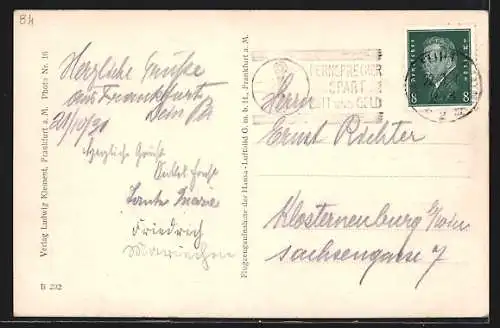 84
Herzliche Grüße
aus Frankfurt
Dein
21/10/31
Herzliche Grüße
Tante Maria
Friedrich
Mariechen
Verlag Ludwig Klement, Frankfurt a. M. Photo Nr. 16
B 292
Flugzeugaufnahme der Hansa-Luftbild G. m. b. H., Frankfurt a. M.
FERNSPRECHER
SPART
ZEIT UND GELD
Deutsches Reich
8 8
Herrn
Ernst Richter
Klosterneuburg b/Wien
Sachsengasse 7